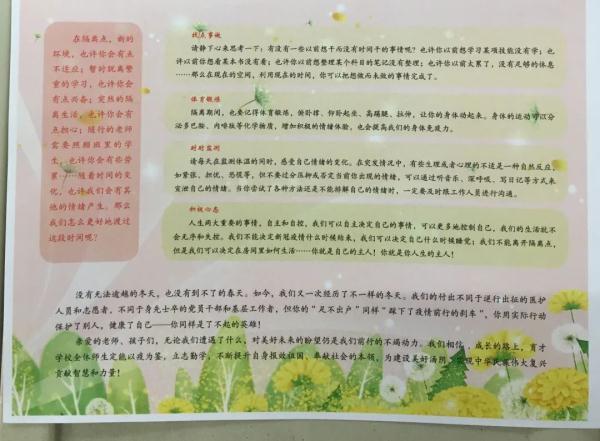 在隔离点，新的
环境，也许你会有点
不适应；暂时脱离繁
重的学习，也许你会
有点兴奋；突然的隔
离生活，也许你会有
点担心；随行的老师
需要照顾班里的学
生，也许你会有些劳
累……随着时间的变
化，也许我们会有其
他的情绪产生。那么
我们怎么更好地渡过
这段时间呢？
找点事做
请静下心来思考一下：有没有一些以前想干而没有时间干的事情呢？也许你以前想学习某项技能没有学；也
许以前你想看某本书没有看；也许以前想整理某个科目的笔记没有整理；也许以前太累了，没有足够的休息
……那么在现在的空间，利用现在的时间，你可以把想做而未做的事情完成了。
体育锻炼
隔离期间，也要记得体育锻炼，俯卧撑、仰卧起坐、高踢腿、拉伸，让你的身体动起来。身体的运动可以分
泌多巴胺、内啡肽等化学物质，增加积极的情绪体验，也会提高我们的身体免疫力。
时时监测
请每天在监测体温的同时，感受自己情绪的变化。在突发情况中，有些生理或者心理的不适是一种自然反应，
如紧张、担忧、恐慌等，但不要过分压抑或否定当前你出现的情绪，可以通过听音乐、深呼吸、写日记等方式来
安抚自己的情绪。当你尝试了各种方法还是不能排解自己的情绪时，一定要及时跟工作人员进行沟通。
积极心态
人生两大重要的事情，自主和自控，我们可以自主决定自己的事情，可以更多地控制自己，我们的生活就不
会无序和失控。我们不能决定新冠疫情什么时候结束，我们可以决定自己什么时候睡觉；我们不能离开隔离点，
但是我们可以决定在房间里如何生活……你就是自己的主人！你就是你人生的主人！
没有无法逾越的冬天，也没有到不了的春天。如今，我们又一次经历了不一样的冬天。我们的付出不同于逆行出征的医护
人员和志愿者，不同于身先士卒的党员干部和基层工作者，但你的“足不出户”同样“踩下了疫情前行的刹车”，你用实际行动
保护了别人，健康了自己——你同样是了不起的英雄！
亲爱的老师、孩子们，无论我们遭遇了什么，对美好未来的盼望仍是我们前行的不竭动力。我们相信，成长的路上，育才
学校全体师生定能以疫为鉴，立志勤学，不断提升自身报效祖国、奉献社会的本领，为建设美好汤阴、实现中华民族伟大复兴
贡献智慧和力量！